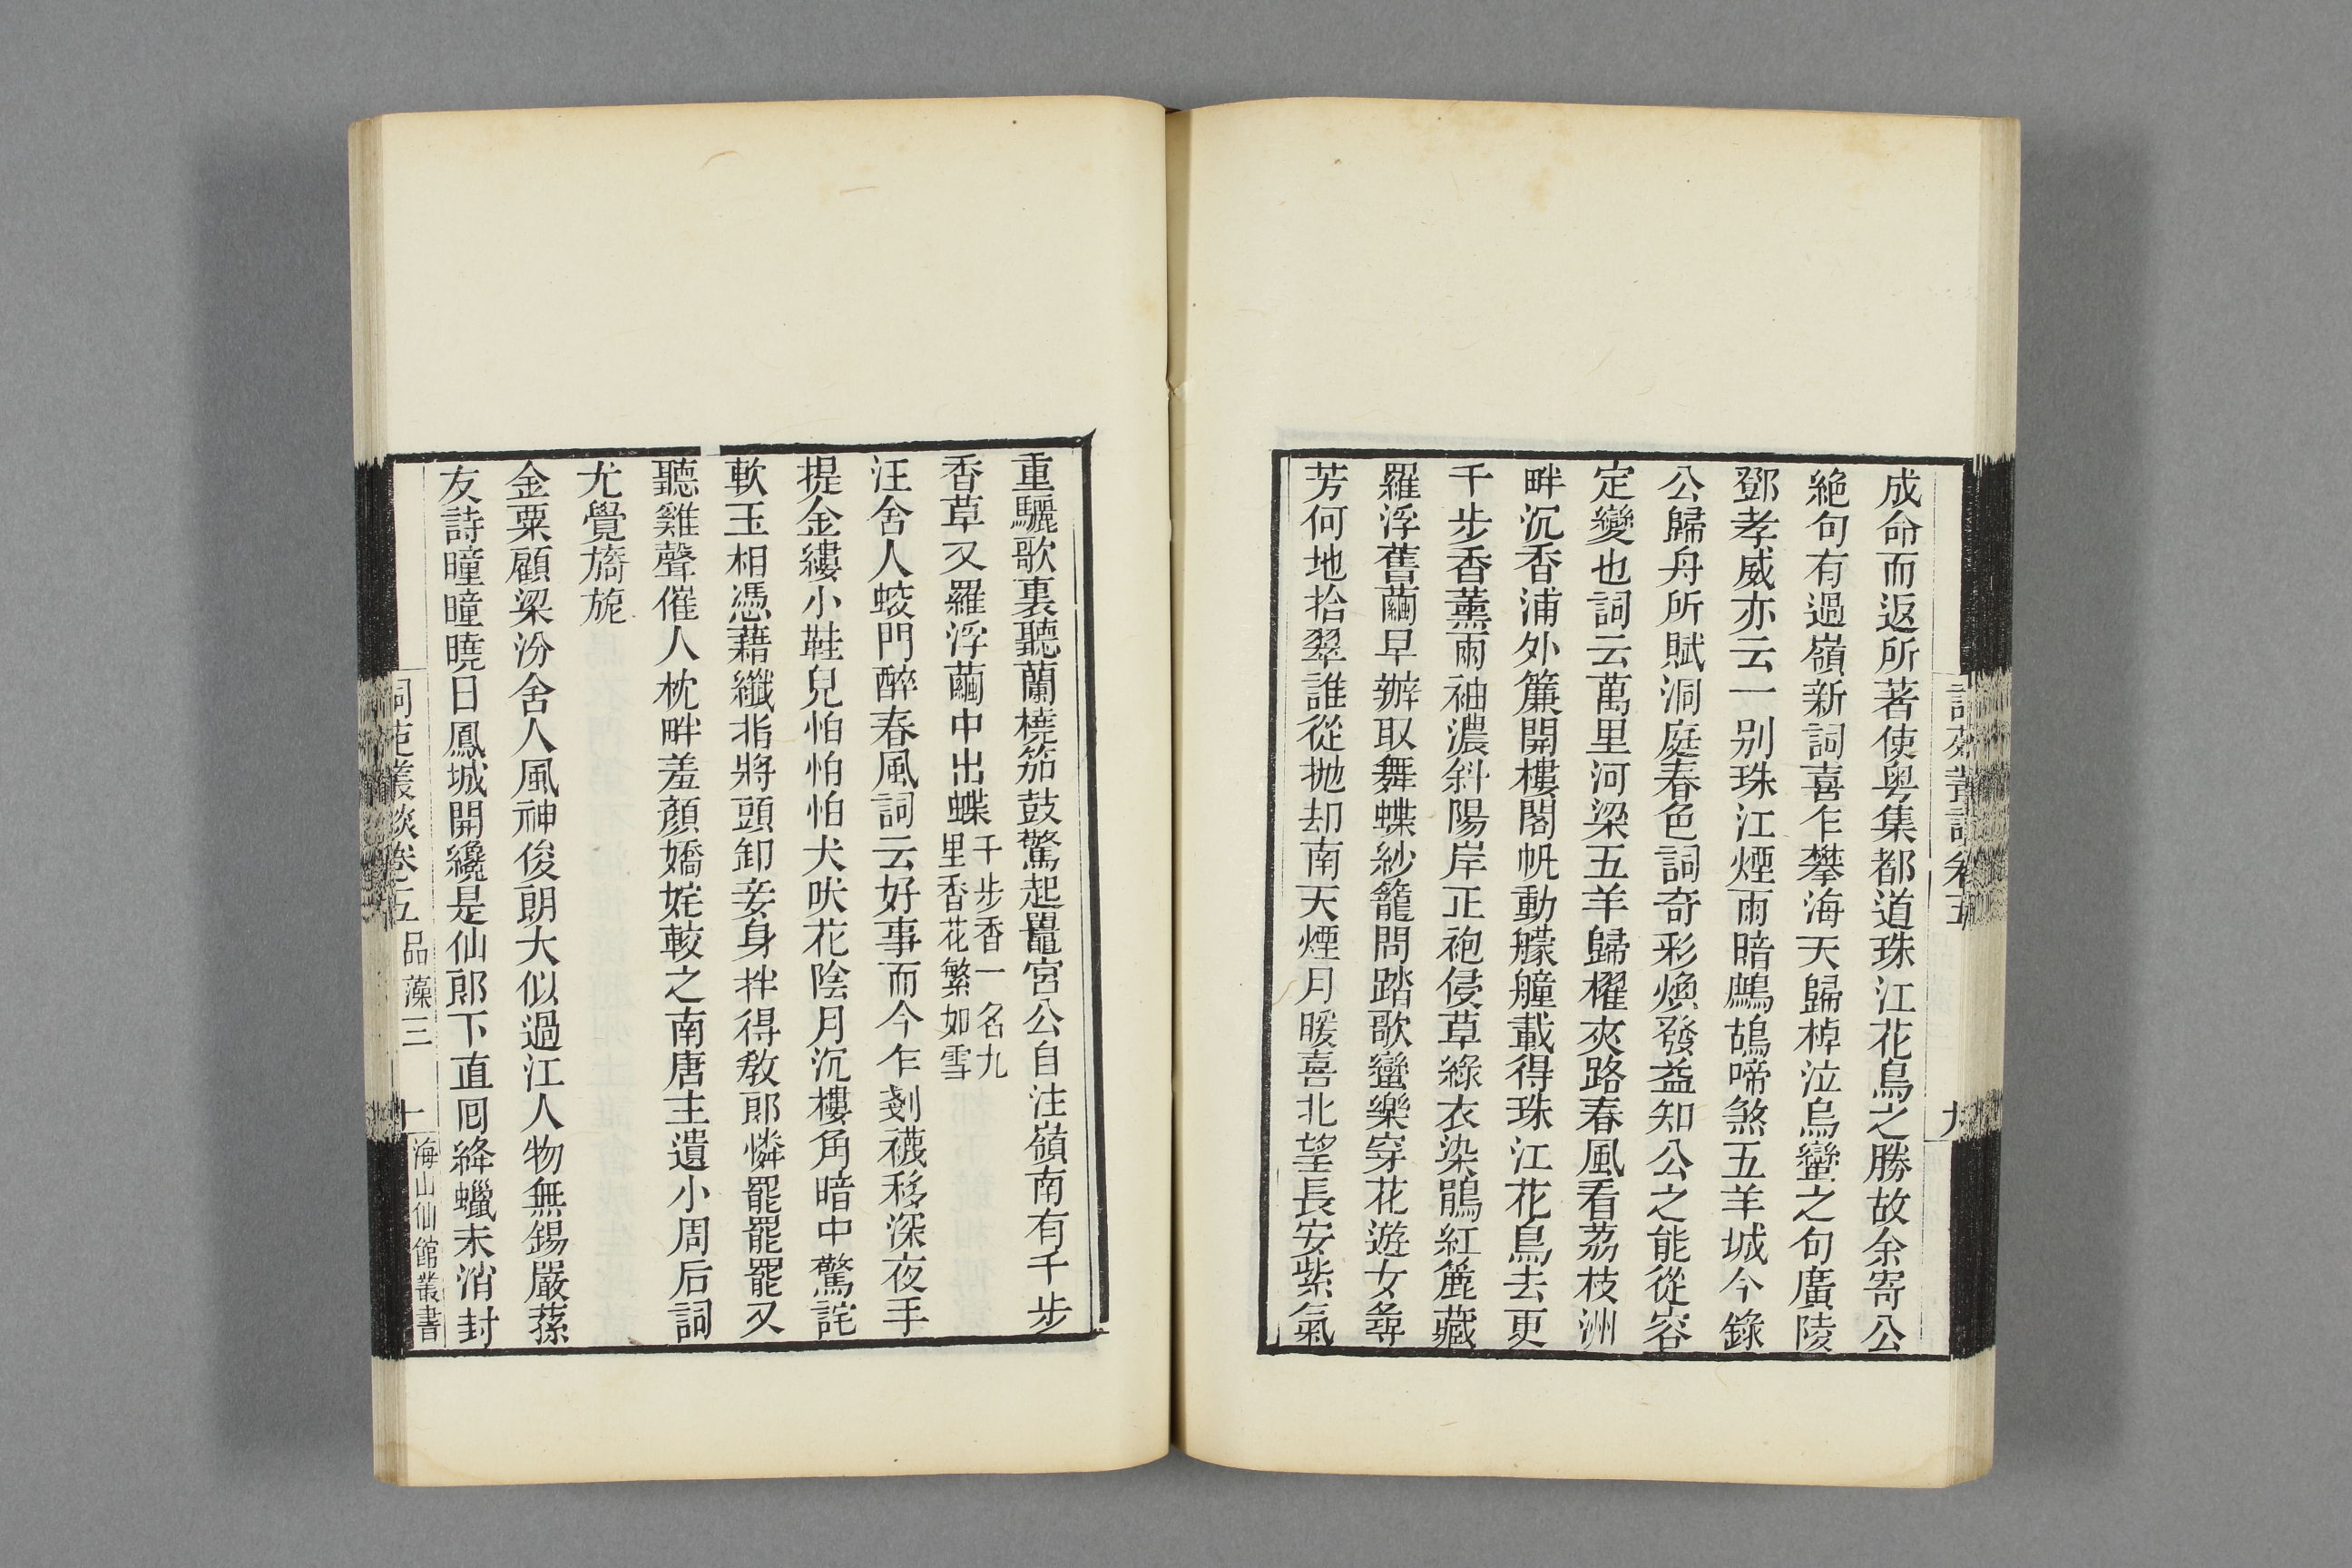 詞苑叢談卷五
九
成命而返所著使粤集都道珠江花鳥之勝故余寄公
絶句有過嶺新詞喜乍攀海天歸棹泣烏蠻之句廣陵
鄧孝威亦云一别珠江煙雨暗鷓鴣啼煞五羊城今錄
公歸舟所賦洞庭春色詞奇彩煥發益知公之能從容
定變也詞云萬里河梁五羊歸櫂夾路春風看荔枝洲
畔沉香浦外簾開樓閣帆動艨艟載得珠江花鳥去更
千步香薰雨袖濃斜陽岸正袍侵草綠衣染鵑紅簏藏
羅浮舊繭早辦取舞蝶紗籠問踏歌蠻樂穿花遊女尋
芳何地拾翠誰從抛却南天煙月暖喜北望長安紫氣
重驪歌裏聽蘭橈笳鼓驚起鼉宮公自注嶺南有千步
香草又羅浮繭中出蝶千步香一名九
里香花繁如雪
汪舍人蛟門醉春風詞云好事而今乍剗襪移深夜手
提金縷小鞋兒怕怕怕犬吠花陰月沉樓角暗中驚詫
軟玉相憑藉纖指將頭卸妾身拌得敎郎憐罷罷罷又
聽雞聲催人枕畔羞顏嬌姹較之南唐主遺小周后詞
尤覺旖旎
金粟顧梁汾舍人風神俊朗大似過江人物無錫嚴蓀
友詩曈曈曉日鳳城開纔是仙郎下直囘絳蠟未消封
詞苑叢談卷五
品藻三
十
海山仙館叢書